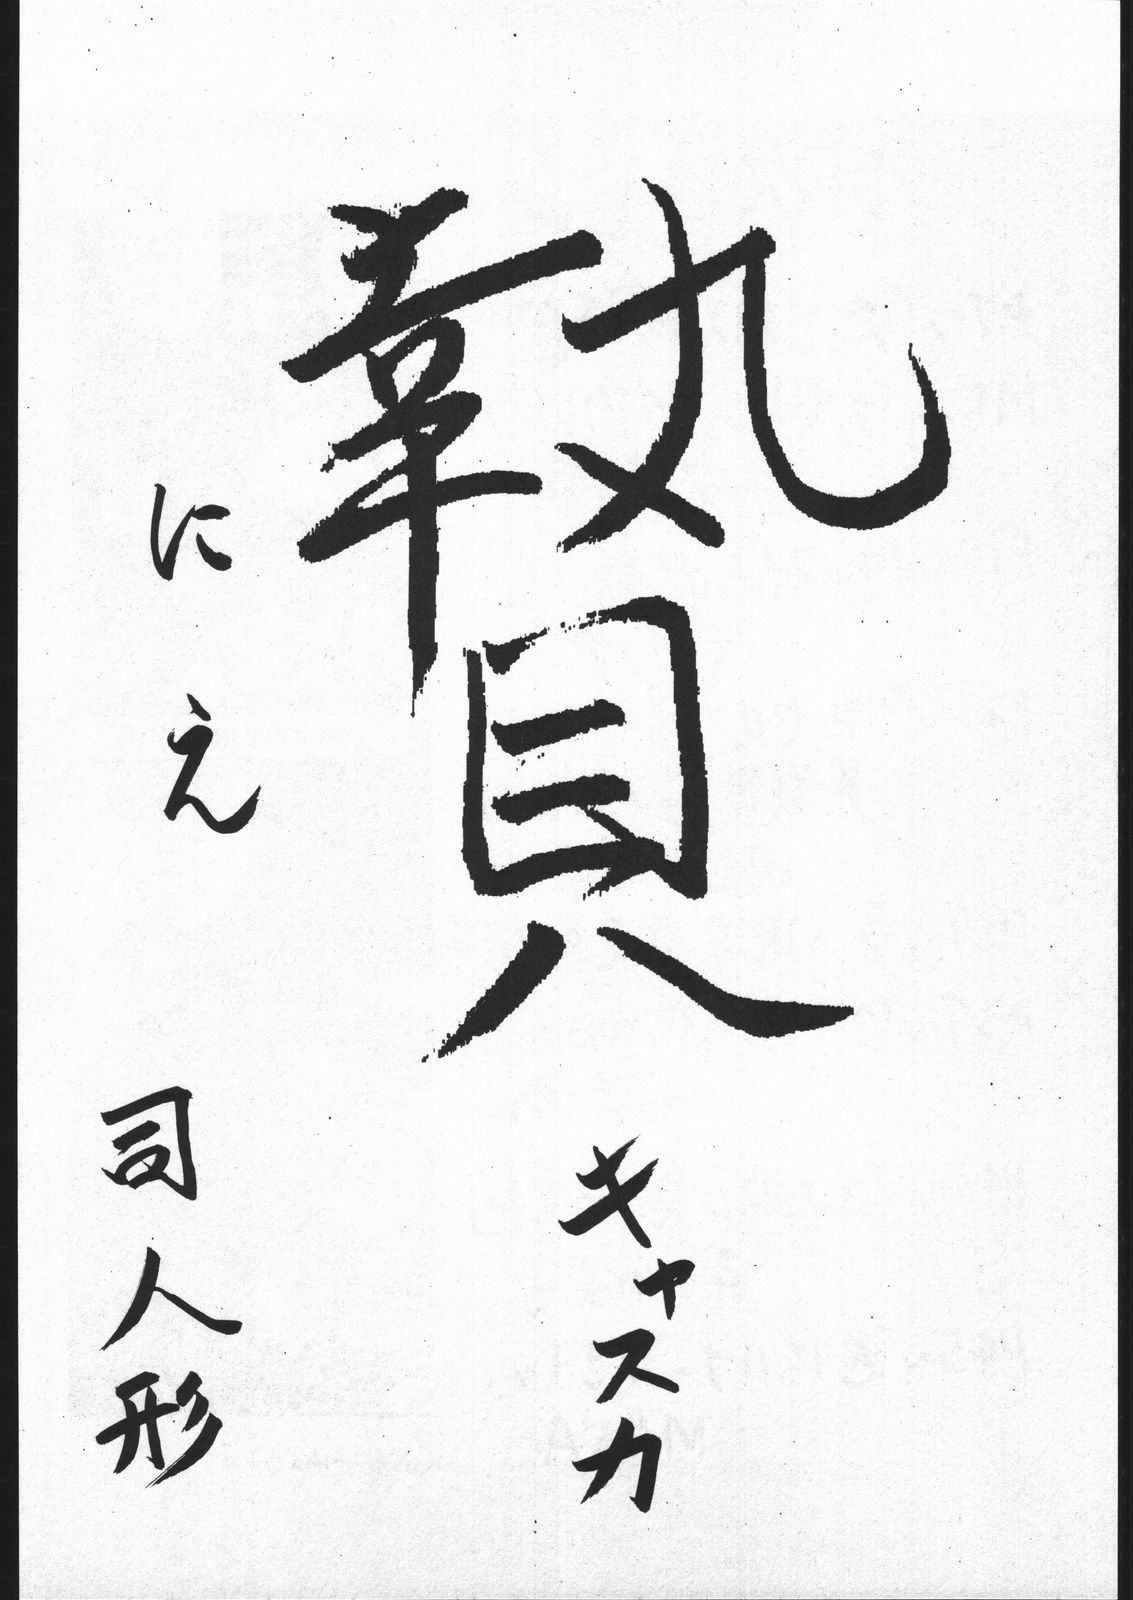 贄
キャスカ
にえ
司人形